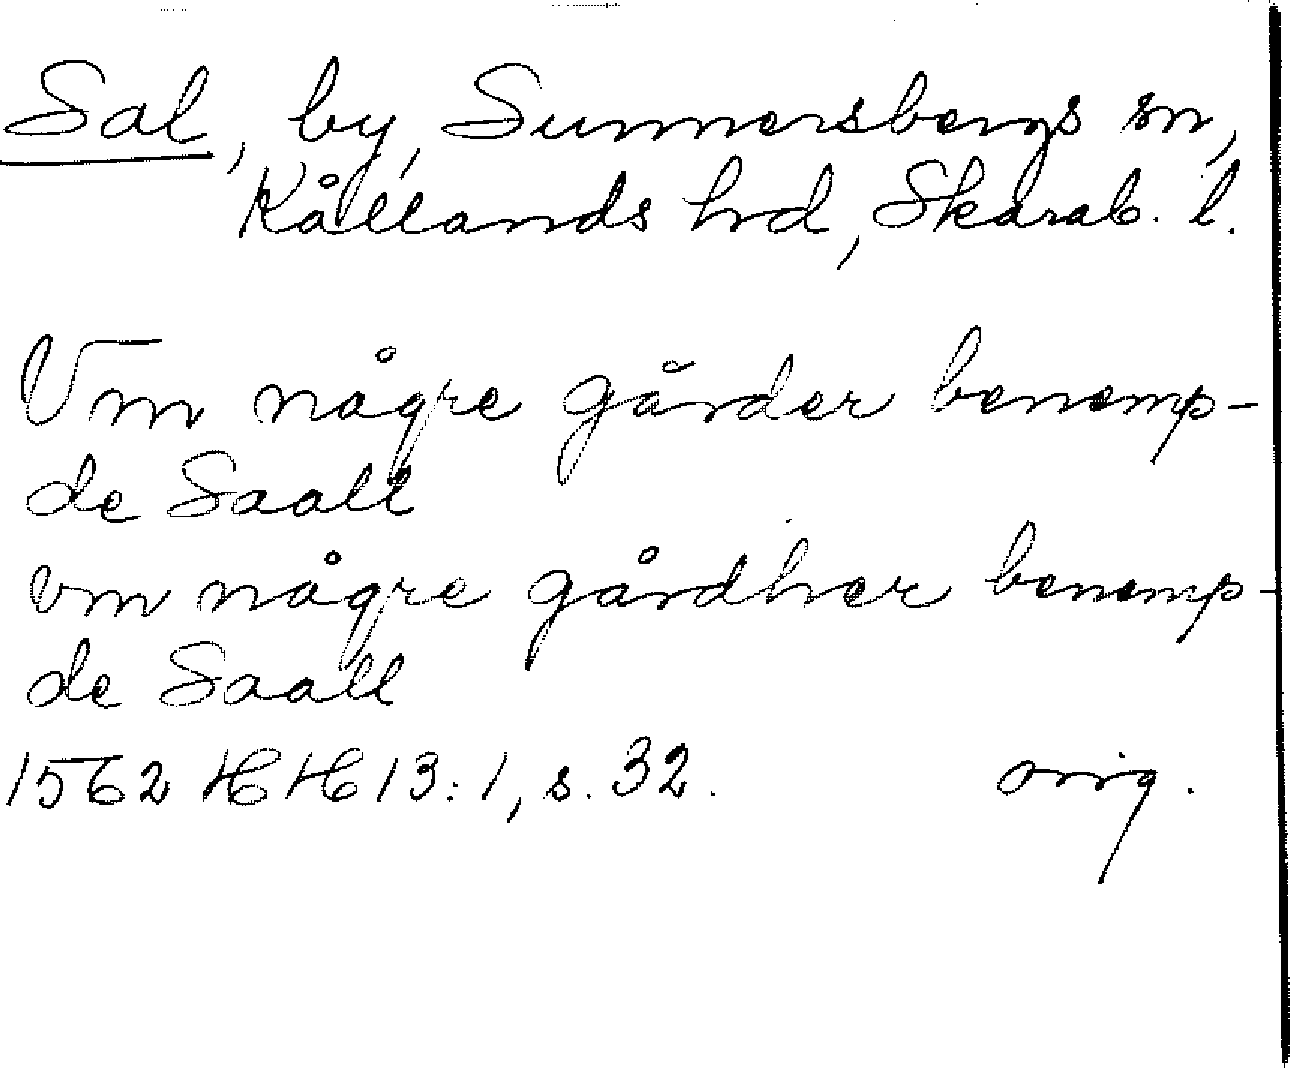 Sal, by, Sunnersbergs sn,
Kållands hrd, Skarab. l.
Vm någre gårder benemp-
de Saall
vm någre gårdher benemp-
de Saall
1562 HH 13:1, s. 32. orig.